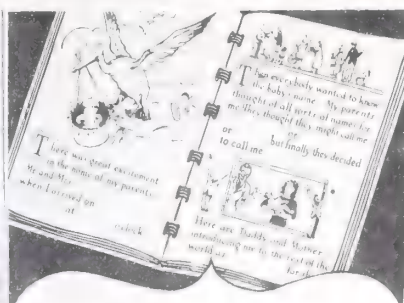 There was great excitement
in the home of my parents
Mr and Mrs
when I arrived on
at
o'clock
Then everybody wanted to know
the baby's name. My parents
thought of all sorts of names for
me. They thought they might call me
or
or but finally they decided
to call me
Here are Daddy and Mother
introducing me to the rest of the
world as
for short